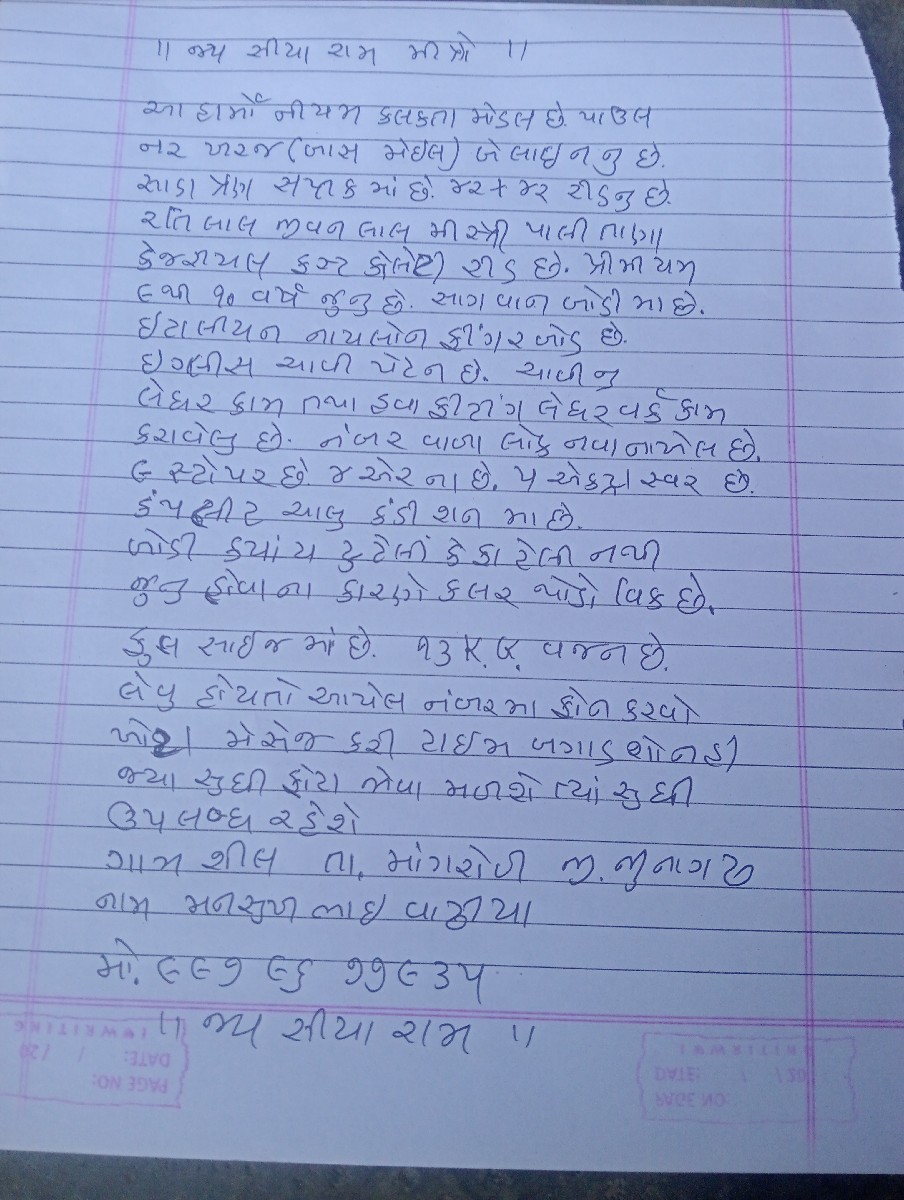 ।। જય સીયા રામ મીત્રો ।।
આ હાર્મોનીયમ કલકતા મોડલ છે. પાઉલ
નર ખરજ (બાસ મેઇલ) બે લાઇન નુ છે.
સાડા ત્રણ સપ્તક માં છે. ૪૨ + ૪૨ રીડનુ છે.
રતિ લાલ જીવન લાલ મીસ્ત્રી પાલી તાણા
કેજરીયલ ફસ્ટ કોલેટી રીડ છે. પ્રીમીયમ
૯ થી ૧૦ વર્ષ જુનુ છે. સાગ વાન બોડી મા છે.
ઇટાલીયન નાયલોન ફીંગર બોર્ડ છે.
ઇંગ્લીસ ચાવી પેટન છે. ચાવી નુ
લેધર કામ તથા હવા ફીટીંગ લેધર વર્ક કામ
કરાવેલુ છે. નંબર વાળા લોક નવા નાખેલ છે.
૯ સ્ટોપર છે. ૪ એર ના છે. ૫ એકસ્ટ્રા સ્વર છે.
કંપલીટ ચાલુ કંડીશન મા છે.
બોડી કયાંય ટુટેલી કે ફાટેલી નથી
જુનુ હોવા ના કારણે કલર થોડો વિક છે.
ફુલ સાઇજ માં છે. ૧૩ K.G. વજન છે.
લેવુ હોયતો આપેલ નંબરમા ફોન કરવો
ખોટા મેસેજ કરી ટાઇમ બગાડશો નહી
જયા સુધી ફોટા જોવા મળશે ત્યાં સુધી
ઉપલબ્ધ રહેશે
ગામ શીલ તા. માંગરોળ જી. જુનાગઢ
નામ મનસુખ ભાઇ વાઢીયા
મો. ૯૯૭ ૯૬ ૭૭૯૩૫
।। જય સીયા રામ ।।
DATE: / /20
PAGE NO:
DATE: / /20
PAGE NO: